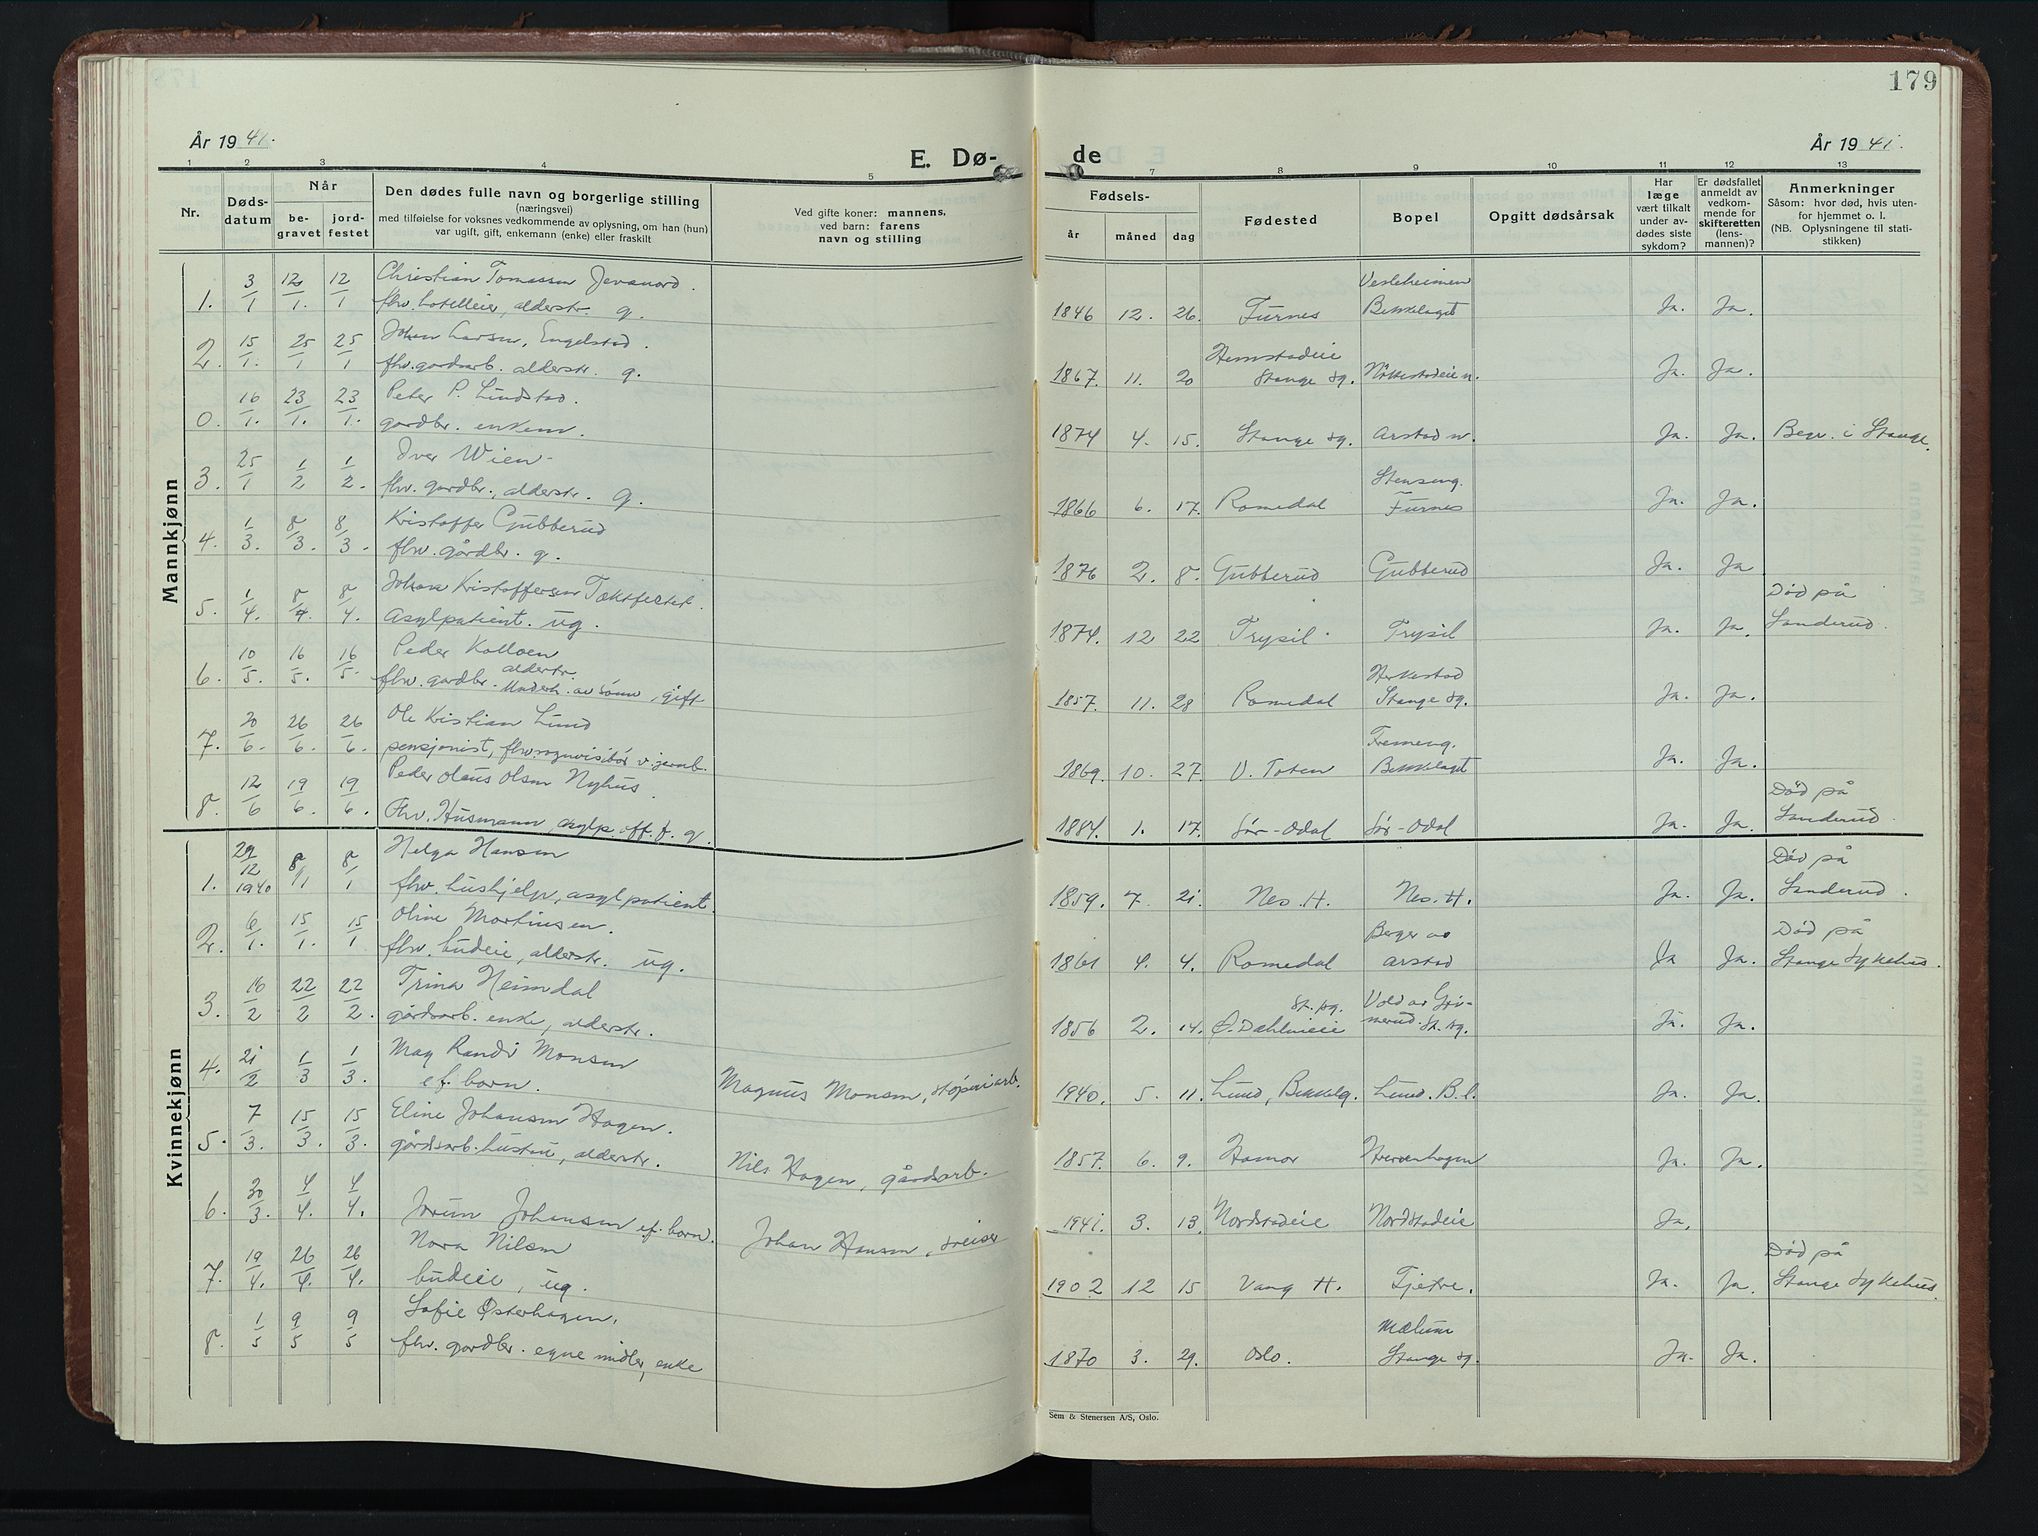 179
År 1941.
E. Dø-
de
År 1941.
1 2 3 4 5 7 8 9 10 11 12 13
Nr.
Døds-
datum
Når
be-
gravet
jord-
festet
Den dødes fulle navn og borgerlige stilling
(næringsvei)
med tilføielse for voksnes vedkommende av oplysning, om han (hun)
var ugift, gift, enkemann (enke) eller fraskilt
Ved gifte koner: mannens,
ved barn: farens
navn og stilling
Fødsels-
år
måned
dag
Fødested
Bopel
Opgitt dødsårsak
Har
læge
vært tilkalt
under av-
dødes siste
sykdom?
Er dødsfallet
anmeldt av
vedkom-
mende for
skifteretten
(lens-
mannen)?
Anmerkninger
Såsom: hvor død, hvis uten-
for hjemmet o. l.
(NB. Oplysningene til stati-
stikken)
Mannkjønn
1. 3/1 12/1. 12/1 Christian Tomassen Jevanord.
fhv. hotelleier, alderstr. g.
1846 12. 26. Furnes Vesleheimen Bekkelaget Ja. Ja.
2. 15/1. 25/1 25/1 Johan Larsen, Engelstad.
fhv. gardsarb. alderstr. g.
1867. 11. 20 Hemstadeie Stange sg. Ja. Ja.
0. 16/1. 23/1. 23/1. Peter P. Lindstad.
gardbr. enkem.
1874 4. 15. Stange sg. Arstad n. Ja. Ja. Begr. i Stange.
3. 25/1 1/2 1/2. Iver Wien
fhv. gardbr., alderstr. g.
1866 6. 17. Romedal Stenseng. Furnes Ja. Ja.
4. 1/3. 8/3. 8/3. Kristoffer Gubberud
fhv. gårdbr. g.
1876 2. 8. Gubberud Gubberud Ja. Ja
5. 1/4. 8/4. 8/4. Johan Kristoffersen
Asylpatient. ug.
1874. 12 22 Trysil. Trysil Ja. Ja. Død på Sanderud.
6. 10/5. 16/5. 16/5. Peder Kolloen
fhv. gardbr. alderstr. Underh. av sønn, gift
1857. 11. 28 Romedal Herkestad Stange sg. Ja. Ja.
7. 20/6. 26/6. 26/6. Ole Kristian Lund
pensjonist, fhv. vognvisitør v. jernb.
1869. 10. 27. V. Toten Fremeng. Bekkelaget Ja. Ja.
8. 12/6 19/6. 19/6. Peder Olaus Olsen Nyhus
Fhv. Husmann, asylp. off. f. g.
1884. 1. 17. Sør-Odal Sør-Odal Ja. Ja. Død på Sanderud.
Kvinnekjønn
1. 29/12 1940 8/1 8/1 Helga Hansen
fhv. hushjelp, asylpatient.
1859. 7. 21. Nes. H. Nes. H. Ja. Ja. Død på Sanderud.
2. 6/1. 15/1. 15/1 Oline Martinsen.
fhv. budeie, alderstr. ug.
1861 4. 4. Romedal Berger av Arstad Ja Ja. Død på Stange Sykehus.
3. 16/2 22/2 22/2. Trina Heimdal
gårdsarb. enke, alderstr.
1856 2. 14. Ø. Dæhlineie St. sg. Vold av Grimerud. St. sg. Ja. Ja.
4. 21/2 1/3 1/3. May Randi Monsen
ef. barn. Magnus Monsen, støperiarb.
1940. 5. 11. Lund, Bekkelg. Lund. B.l. Ja. Ja.
5. 7/3. 15/3. 15/3. Eline Johansen Hagen.
gårdsarb. hustru, alderstr. Nils Hagen, gårdsarb.
1857. 6. 9. Hamar Ja. Ja.
6. 30/3. 4/4. 4/4. Jorun Johansen ef. barn. Johan Hansen, sveiser
1941. 3. 13. Nordstadeie Nordstadeie Ja.
7. 19/4. 26/4. 26/4. Nora Nilsen
budeie, ug.
1902 12 15 Vang H. Tjetre. Ja. Ja. Død på Stange Sykehus.
8. 1/5 9/5 9/5 Sofie Østerhagen,
fhv. gardbr. egne midler, enke
1870 3. 29. Oslo. Mælum Stange sg. Ja. Ja.
Sem & Stenersen A/S, Oslo.